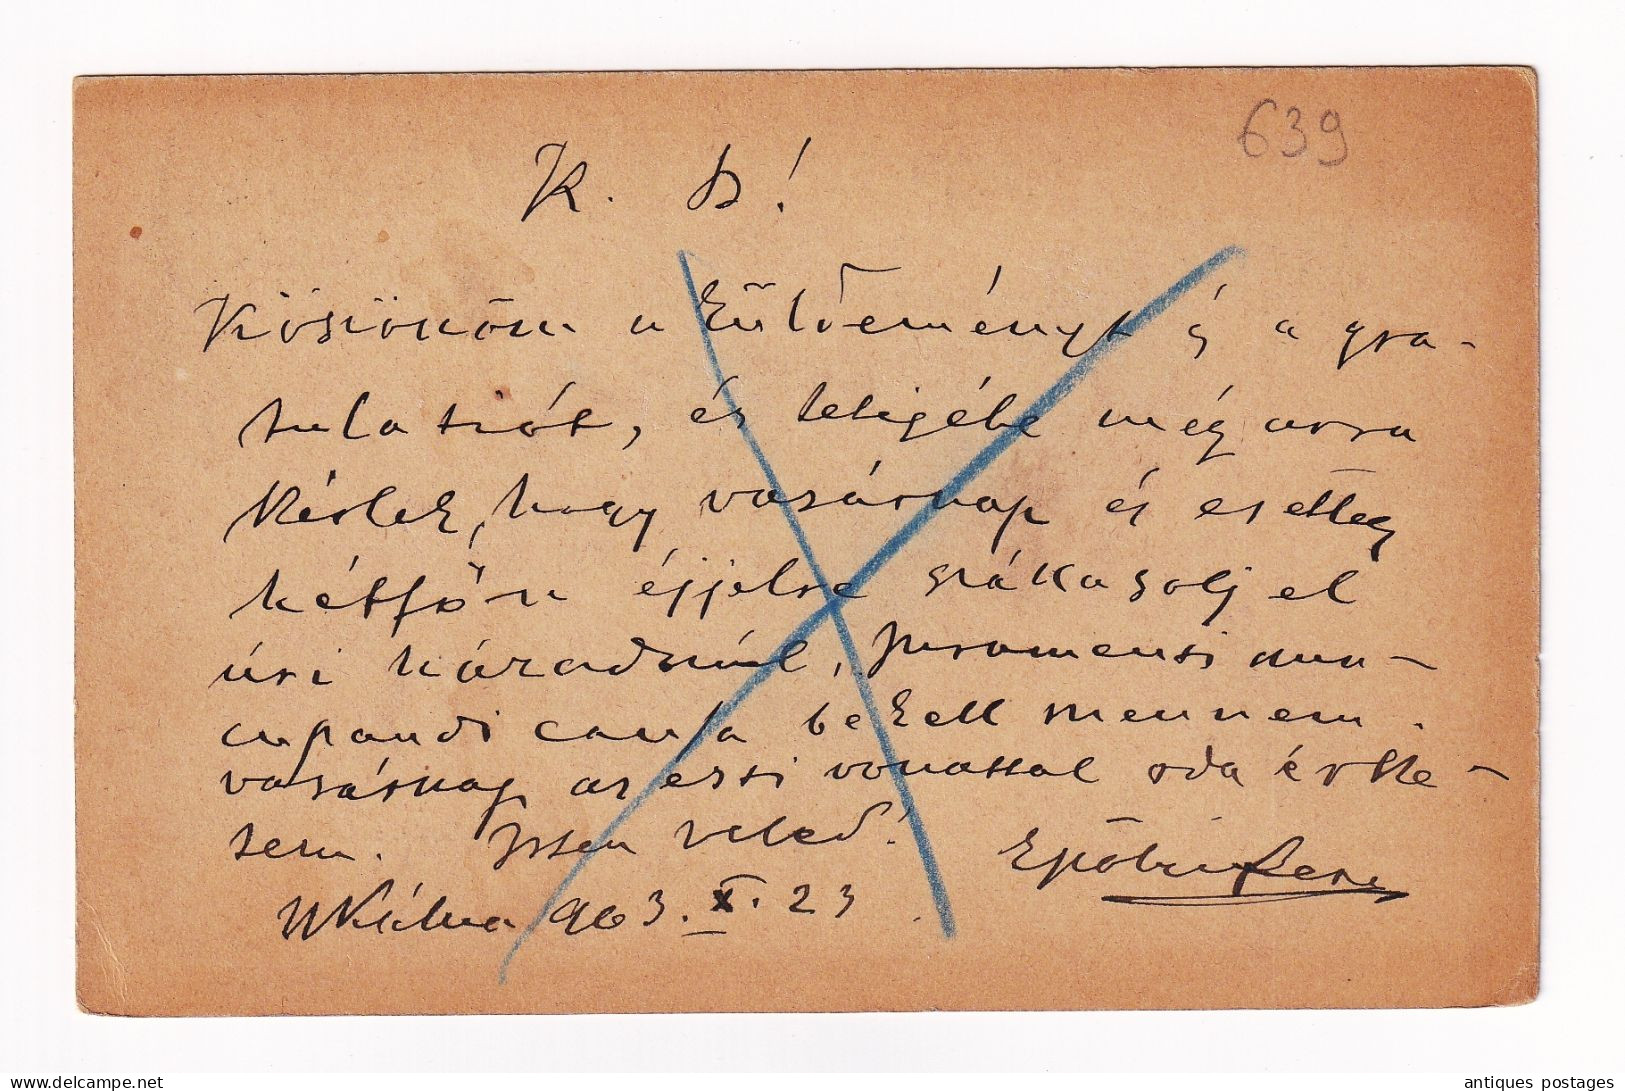 639
K. B!
Köszönöm a küldeményt és a gra-
tulatiót, és
még arra
kérlek, hogy vasárnap és esetleg
hétfőn éjjelre szállásolj el
úri házadnál, juramenti nun-
cupandi causa be kell mennem.
vasárnap az esti vonattal oda érke-
zem. Isten veled!
903. X. 23
delcampe.net
antiques postages